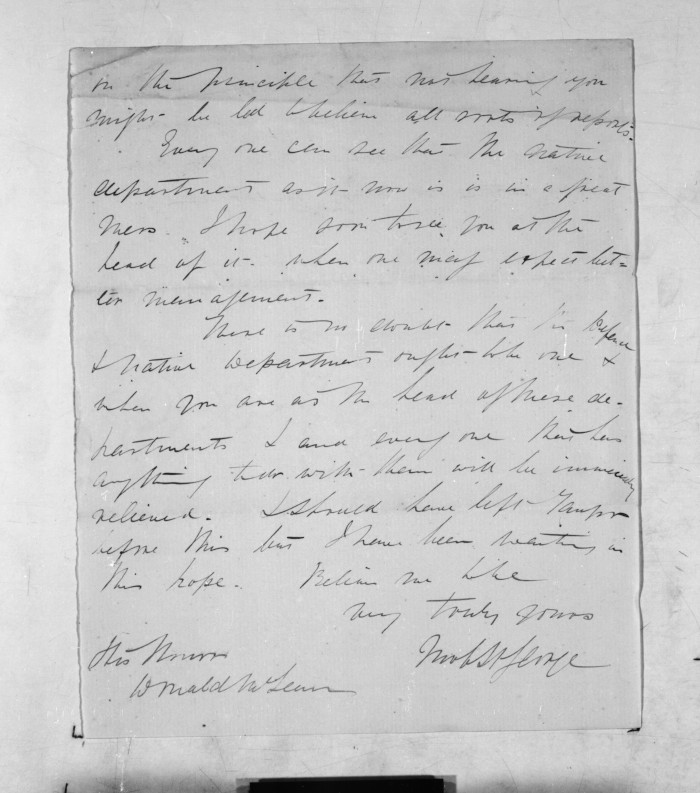 on the principle that not hearing you
might be led to believe all sorts of reports.
Every one can see that the native
department as it now is is in a great
mess. I hope soon to see you at the
head of it when one may expect bet-
ter management.
There is no doubt that the Defence
& Native Department ought to be one &
when you are at the head of these de-
partments I and every one that has
anything to do with them will be immensely
relieved. I should have left
before this but I have been waiting in
this hope. Believe me to be
very truly yours
St George
His Honor
Donald McLean